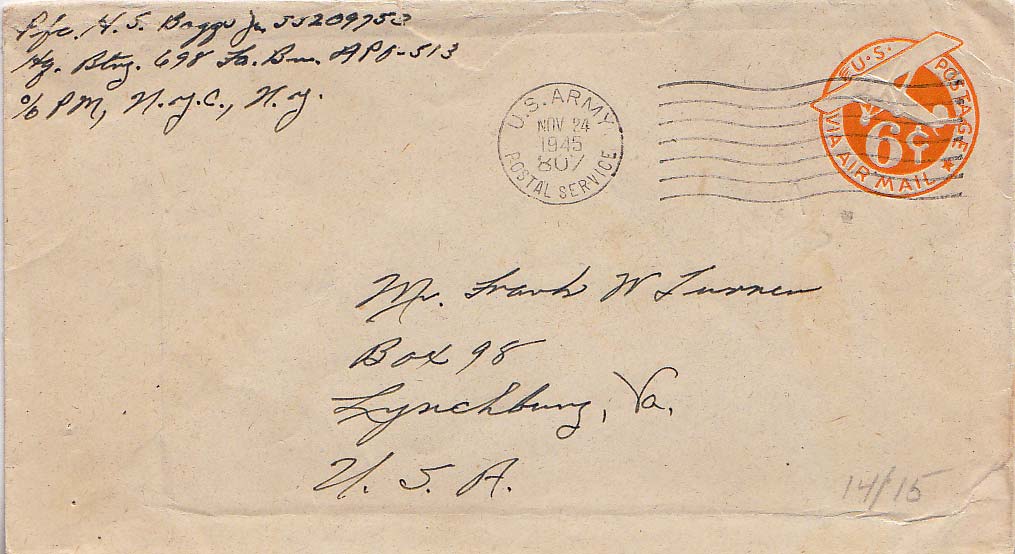 Pfc. H. S. Boggs Jr. 55209752
Hq. Btry. 698 Fa. Bn. APO-513
c/o PM, N.Y.C., N.Y.
U.S. ARMY
NOV 24
1945
807
POSTAL SERVICE
U.S. POSTAGE
6¢
VIA AIR MAIL
Mr. Frank W Turner
Box 98
Lynchburg, Va.
U. S. A.
14/15